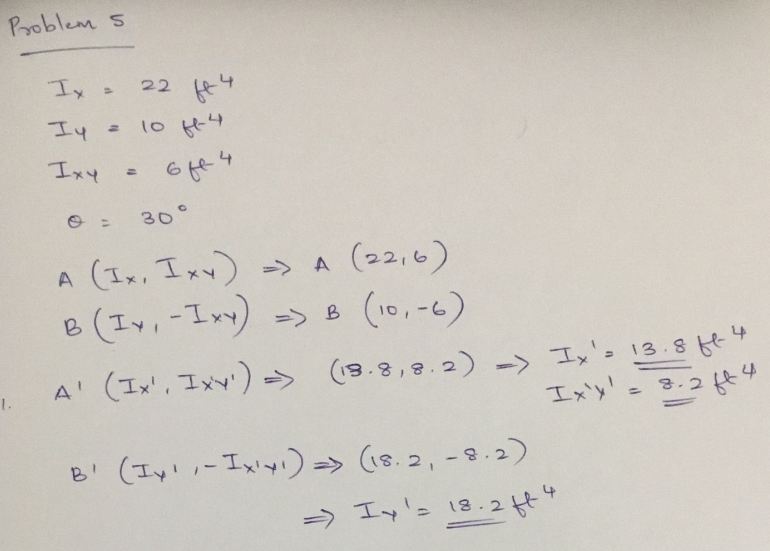 Problem 5
Ix = 22 ft4
Iy = 10 ft4
Ixy = 6 ft4
θ = 30°
A (Ix, Ixy) => A (22,6)
B (Iy, -Ixy) => B (10,-6)
1. A' (Ix', Ix'y') => (13.8, 8.2) => Ix' = 13.8 ft4
Ix'y' = 8.2 ft4
B' (Iy', -Ix'y') => (18.2, -8.2)
=> Iy' = 18.2 ft4